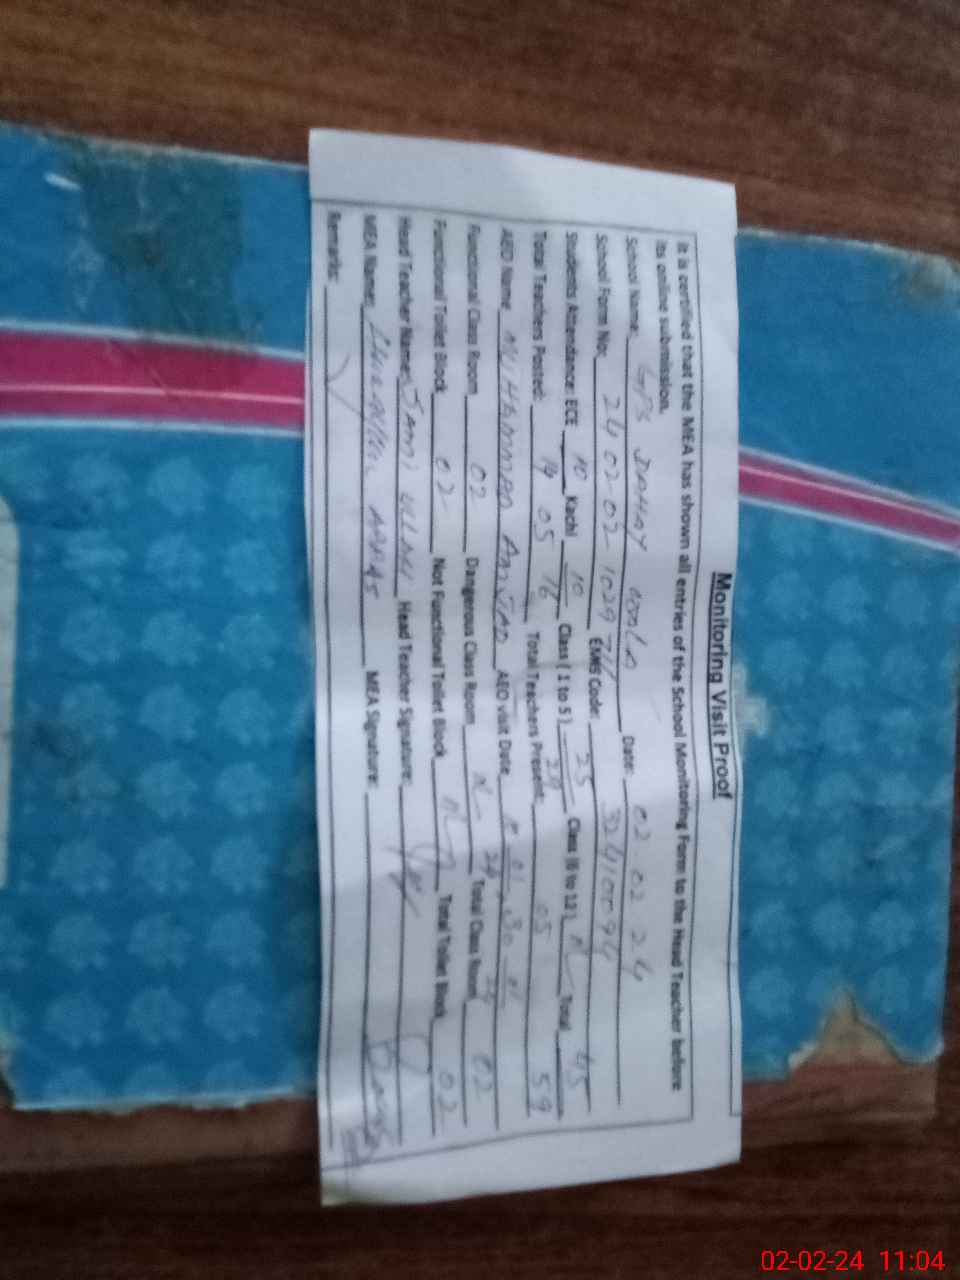 Monitoring Visit Proof
It is certified that the MEA has shown all entries of the School Monitoring Form to the Head Teacher before
its online submission.
School Name: GPS Date: 02.02.24
School Form No: 24 02 02 1029 EMIS Code: 32410094
Students Attendance: ECE 10 Kachi 10 Class (1 to 5) 25 Class (6 to 12) Total 45
14 16 29 59
Total Teachers Posted: 05 Total Teachers Present: 05
AEO Name MUHAMMAD AMJAD AEO visit Date
Functional Class Room 02 Dangerous Class Room Total Class Room 02
Functional Toilet Block 02 Not Functional Toilet Block Total Toilet Block 02
Head Teacher Name: SAMI ULLAH Head Teacher Signature:
MEA Name: ABBAS MEA Signature:
Remarks:
02-02-24 11:04